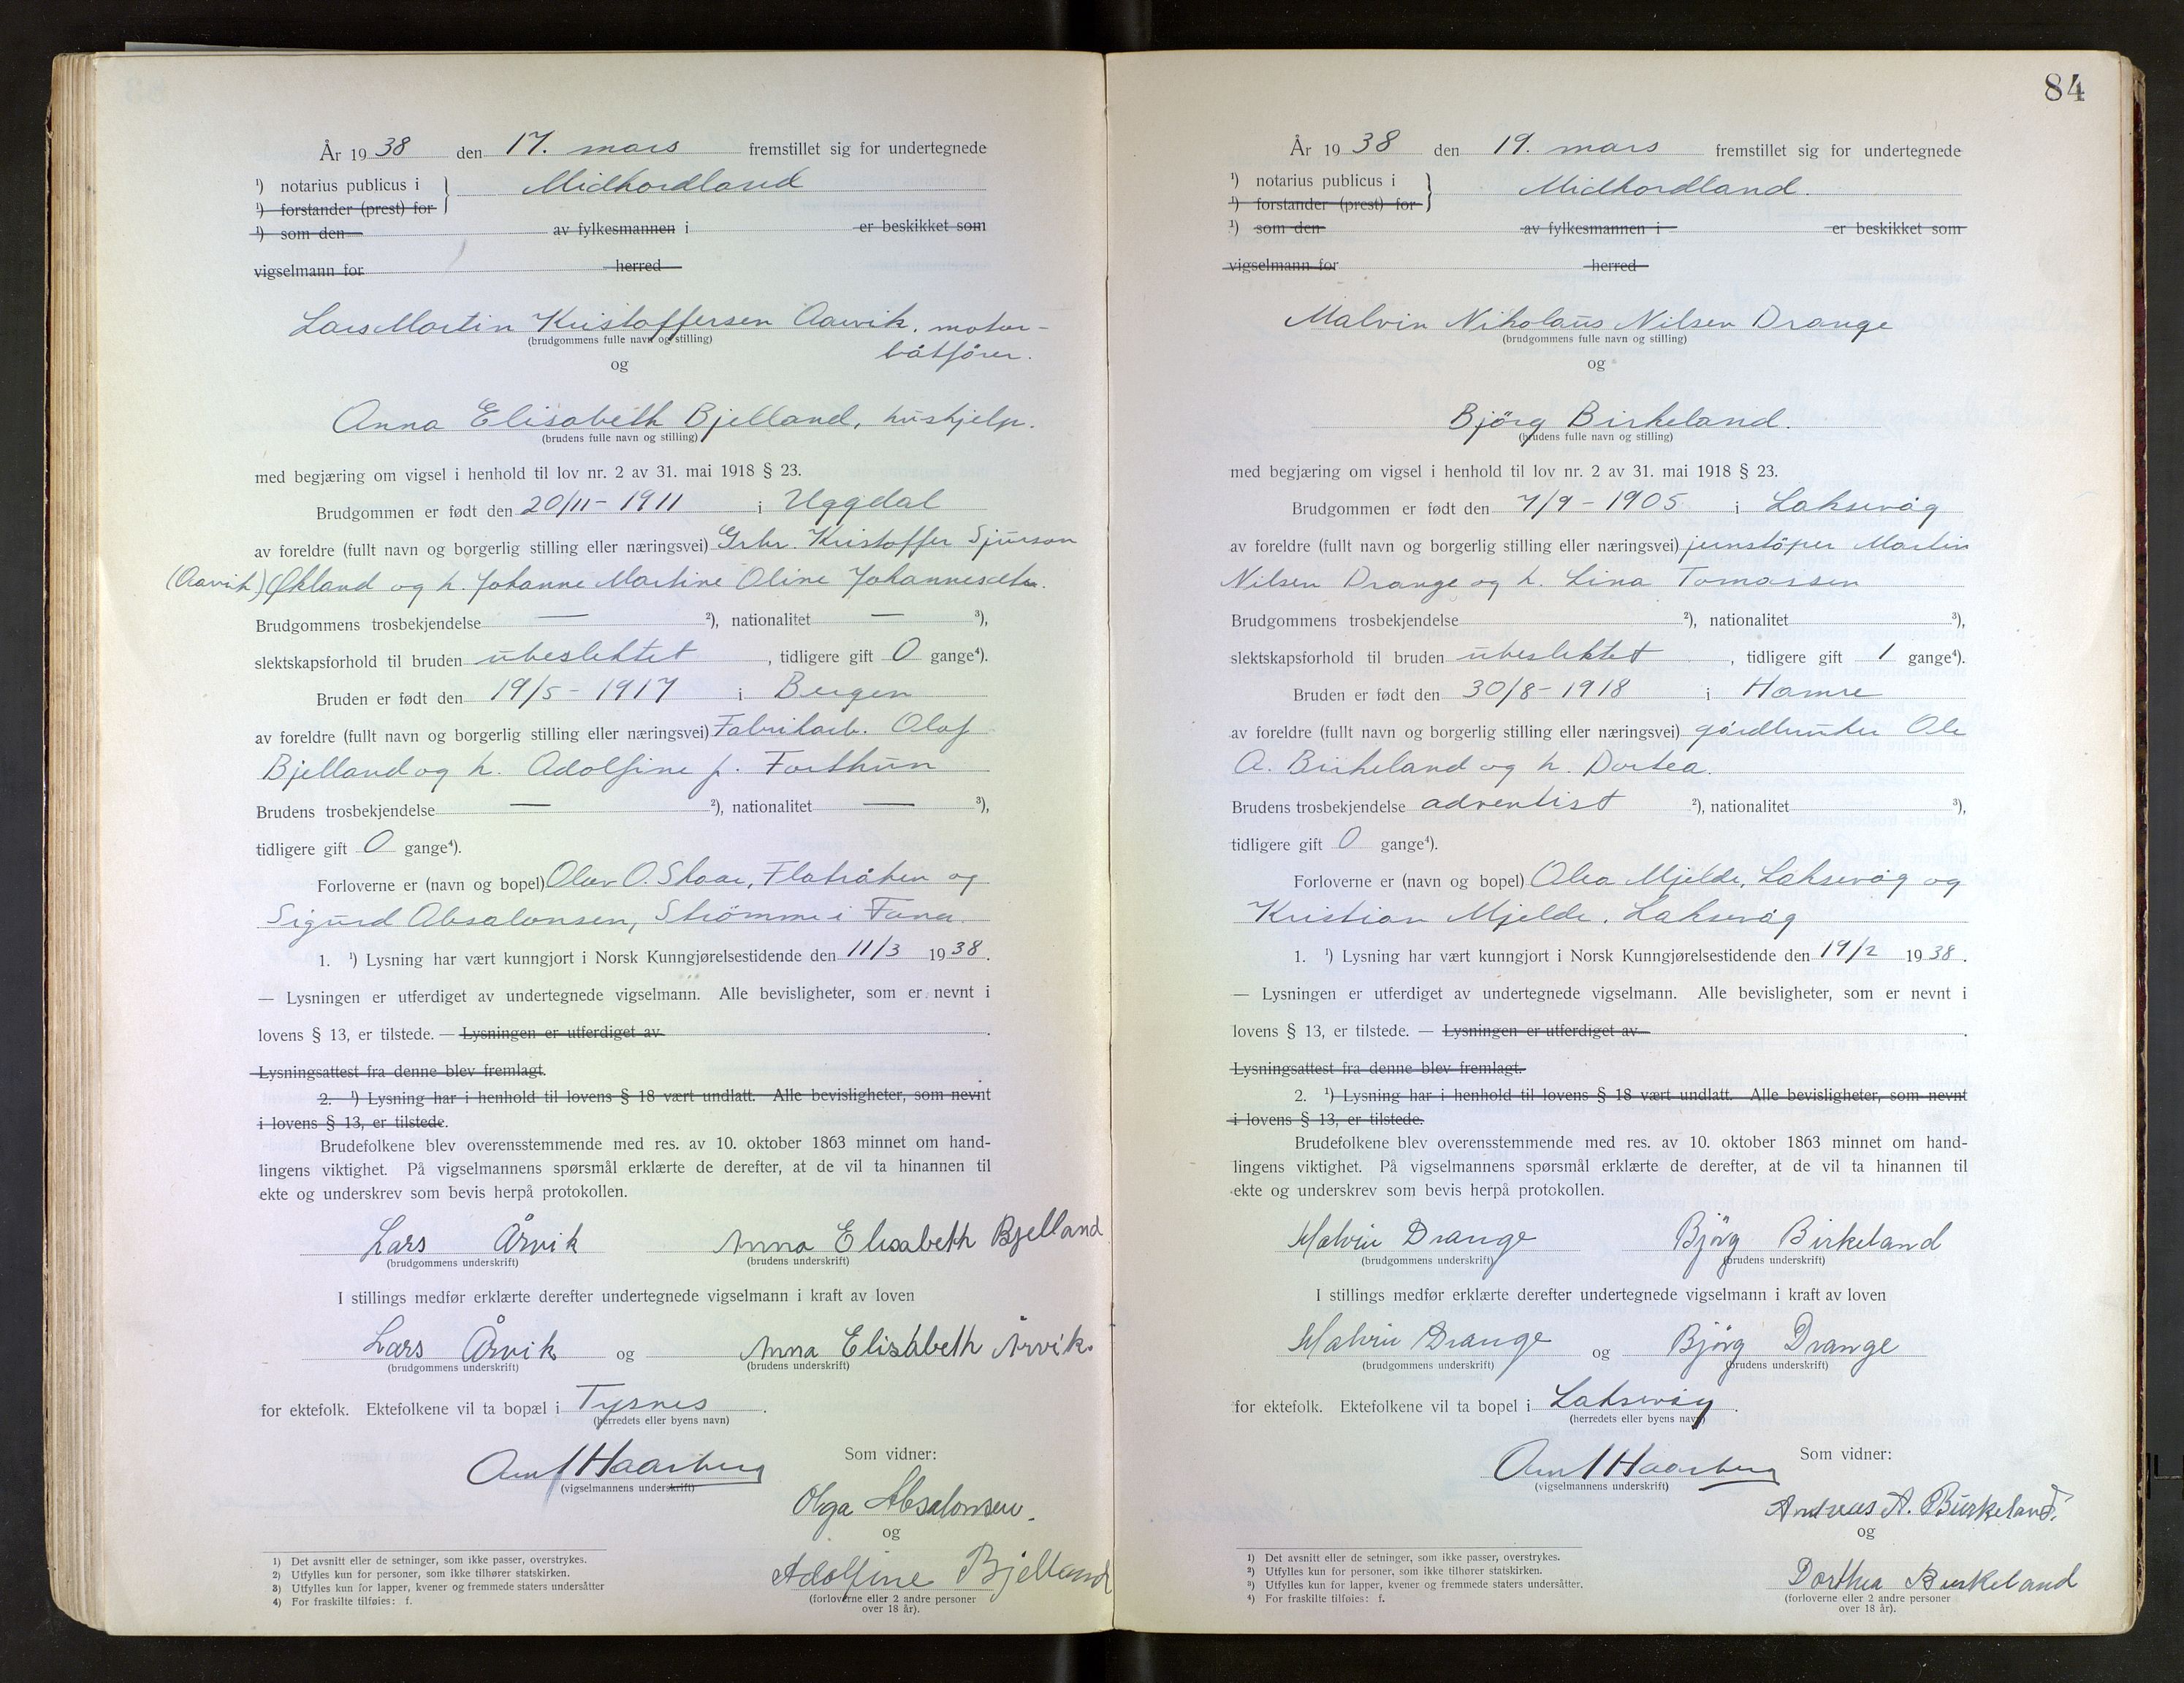 År 1938 den 17. mars fremstillet sig for undertegnede
¹) notarius publicus i
¹) forstander (prest) for } Midhordland
¹) som den av fylkesmannen i er beskikket som
vigselmann for herred
Lars Martin Kristoffersen Aarvik, motor-
(brudgommens fulle navn og stilling)
båtfører.
og
Anna Elisabeth Bjelland, hushjelp.
(brudens fulle navn og stilling)
med begjæring om vigsel i henhold til lov nr. 2 av 31. mai 1918 § 23.
Brudgommen er født den 20/11 - 1911 i Uggdal
av foreldre (fullt navn og borgerlig stilling eller næringsvei) Grbr. Kristoffer Sjurson
(Aarvik) Økland og h. Johanne Martine Oline Johannesdtr.
Brudgommens trosbekjendelse — ²), nationalitet — ³),
slektskapsforhold til bruden ubeslektet, tidligere gift 0 gange⁴).
Bruden er født den 19/5 - 1917 i Bergen
av foreldre (fullt navn og borgerlig stilling eller næringsvei) Fabrikarb. Olaf
Bjelland og h. Adolfine f. Forthun
Brudens trosbekjendelse — ²), nationalitet — ³),
tidligere gift 0 gange⁴).
Forloverne er (navn og bopel) Olav O. Skaar, Flatråker og
Sigurd Absalonsen, Strømme i Fana.
1. ¹) Lysning har vært kunngjort i Norsk Kunngjørelsestidende den 11/3 1938.
— Lysningen er utferdiget av undertegnede vigselmann. Alle bevisligheter, som er nevnt i
lovens § 13, er tilstede. — Lysningen er utferdiget av .
Lysningsattest fra denne blev fremlagt.
2. ¹) Lysning har i henhold til lovens § 18 vært undlatt. Alle bevisligheter, som nevnt
i lovens § 13, er tilstede.
Brudefolkene blev overensstemmende med res. av 10. oktober 1863 minnet om hand-
lingens viktighet. På vigselmannens spørsmål erklærte de derefter, at de vil ta hinannen til
ekte og underskrev som bevis herpå protokollen.
Lars Årvik Anna Elisabeth Bjelland
(brudgommens underskrift) (brudens underskrift)
I stillings medfør erklærte derefter undertegnede vigselmann i kraft av loven
Lars Årvik og Anna Elisabeth Årvik.
(brudgommens underskrift) (brudens underskrift)
for ektefolk. Ektefolkene vil ta bopæl i Tysnes .
(herredets eller byens navn)
Som vidner:
Haarberg
(vigselmannens underskrift)
Olga Absalonsen.
og
Adolfine Bjelland
(forloverne eller 2 andre personer
over 18 år).
1) Det avsnitt eller de setninger, som ikke passer, overstrykes.
2) Utfylles kun for personer, som ikke tilhører statskirken.
3) Utfylles kun for lapper, kvener og fremmede staters undersåtter
4) For fraskilte tilføies: f.
84
År 1938 den 19. mars fremstillet sig for undertegnede
¹) notarius publicus i
¹) forstander (prest) for } Midhordland.
¹) som den av fylkesmannen i er beskikket som
vigselmann for herred
Malvin Nikolaus Nilsen Drange
(brudgommens fulle navn og stilling)
og
Björg Birkeland.
(brudens fulle navn og stilling)
med begjæring om vigsel i henhold til lov nr. 2 av 31. mai 1918 § 23.
Brudgommen er født den 7/9 - 1905 i Laksevåg
av foreldre (fullt navn og borgerlig stilling eller næringsvei) jernstöper Martin
Nilsen Drange og h. Lina Tomassen
Brudgommens trosbekjendelse ²), nationalitet ³),
slektskapsforhold til bruden ubeslektet, tidligere gift 1 gange⁴).
Bruden er født den 30/8 - 1918 i Hamre
av foreldre (fullt navn og borgerlig stilling eller næringsvei) gårdbruker Ole
A. Birkeland og h. Dortea.
Brudens trosbekjendelse adventist ²), nationalitet ³),
tidligere gift 0 gange⁴).
Forloverne er (navn og bopel) Olea Mjelde, Laksevåg og
Kristian Mjelde, Laksevåg
1. ¹) Lysning har vært kunngjort i Norsk Kunngjørelsestidende den 19/2 1938.
— Lysningen er utferdiget av undertegnede vigselmann. Alle bevisligheter, som er nevnt i
lovens § 13, er tilstede. — Lysningen er utferdiget av .
Lysningsattest fra denne blev fremlagt.
2. ¹) Lysning har i henhold til lovens § 18 vært undlatt. Alle bevisligheter, som nevnt
i lovens § 13, er tilstede.
Brudefolkene blev overensstemmende med res. av 10. oktober 1863 minnet om hand-
lingens viktighet. På vigselmannens spørsmål erklærte de derefter, at de vil ta hinannen til
ekte og underskrev som bevis herpå protokollen.
Malvin Drange Björg Birkeland
(brudgommens underskrift) (brudens underskrift)
I stillings medfør erklærte derefter undertegnede vigselmann i kraft av loven
Malvin Drange og Björg Drange
(brudgommens underskrift) (brudens underskrift)
for ektefolk. Ektefolkene vil ta bopel i Laksevåg .
(herredets eller byens navn)
Som vidner:
Haarberg
(vigselmannens underskrift)
Andreas A. Birkeland.
og
Dorthea Birkeland
(forloverne eller 2 andre personer
over 18 år).
¹) Det avsnitt eller de setninger, som ikke passer, overstrykes.
²) Utfylles kun for personer, som ikke tilhører statskirken.
³) Utfylles kun for lapper, kvener og fremmede staters undersåtter.
⁴) For fraskilte tilføies: f.